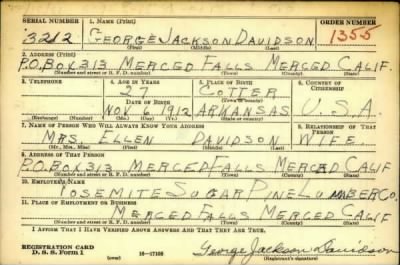 SERIAL NUMBER 1. NAME (Print) ORDER NUMBER
3212 GEORGE JACKSON DAVIDSON 1355
(First) (Middle) (Last)
2. ADDRESS (Print)
P.O. BOX 313 MERCED FALLS MERCED CALIF.
(Number and street or R. F. D. number) (Town) (County) (State)
3. TELEPHONE 4. AGE IN YEARS 5. PLACE OF BIRTH 6. COUNTRY OF CITIZENSHIP
27 COTTER
DATE OF BIRTH (Town or county)
NOV. 6, 1912 ARKANSAS U.S.A.
(Exchange) (Number) (Mo.) (Day) (Yr.) (State or country)
7. NAME OF PERSON WHO WILL ALWAYS KNOW YOUR ADDRESS 8. RELATIONSHIP OF THAT PERSON
MRS. ELLEN DAVIDSON WIFE
(Mr., Mrs., Miss) (First) (Middle) (Last)
9. ADDRESS OF THAT PERSON
P.O. BOX 313 MERCED FALLS MERCED CALIF
(Number and street or R. F. D. number) (Town) (County) (State)
10. EMPLOYER'S NAME
YOSEMITE SUGAR PINE LUMBER CO.
11. PLACE OF EMPLOYMENT OR BUSINESS
MERCED FALLS MERCED CALIF
(Number and street or R. F. D. number) (Town) (County) (State)
I AFFIRM THAT I HAVE VERIFIED ABOVE ANSWERS AND THAT THEY ARE TRUE.
REGISTRATION CARD
D. S. S. Form 1 16—17105 George Jackson Davidson
(Registrant's signature)